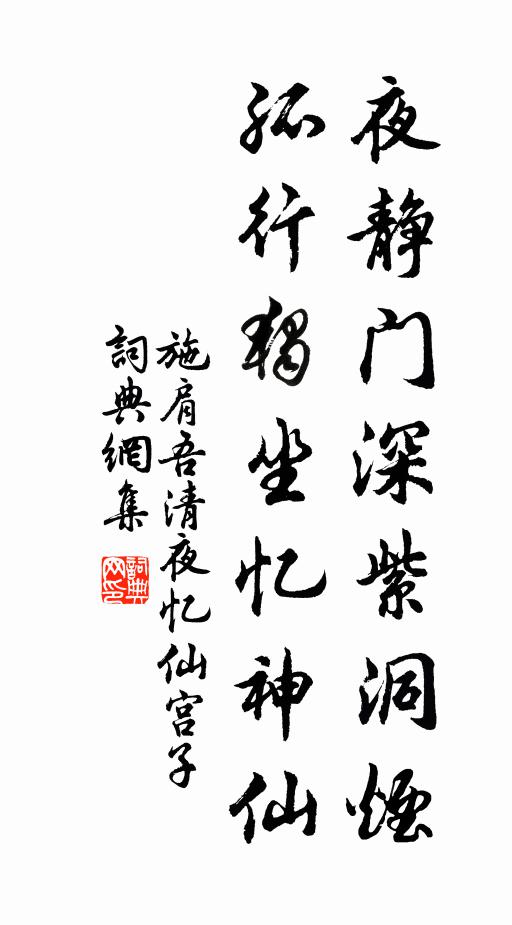 夜静门深紫洞煙
孤行独坐忆神仙
施肩吾清夜忆仙宫子
詞典網集
詞典网印